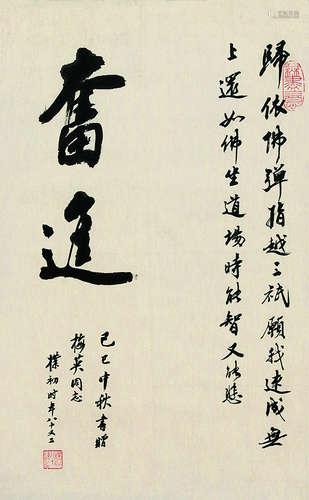 歸依佛彈指越三祇願我速成無
上還如佛坐道場時能智又能悲
奮進
己巳中秋書贈
梅英同志
樸初時年八十又三